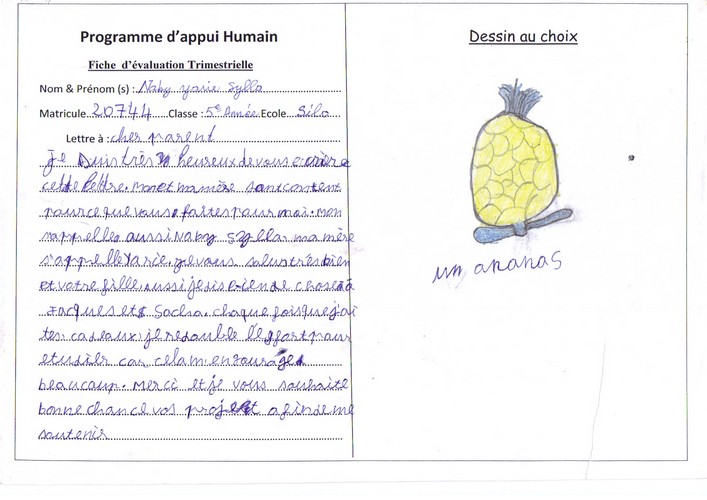 Programme d'appui Humain
Fiche d'évaluation Trimestrielle
Nom & Prénom (s) : Naby yarie Sylla
Matricule 20744 Classe : 5e Année Ecole Silo
Lettre à : cher parent
je suis très heureux de vous ecrire
cette lettre. Moi et ma mère sont content
pour ce que vous faites pour moi. mon
s'appelle aussi Naby Sylla ma mère
s'appelle Yarie. je vous salus très bien
et votre fille aussi je dis bien de chose à
Jacques et Sacha. chaque fois que j'ai
tes cadeaux je redouble l'effort pour
etudier car cela m'encourage
beaucoup. Merci et je vous souhaite
bonne chance vos projet afin de me
soutenir
Dessin au choix
un ananas